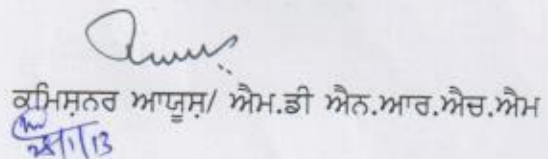 ਕਮਿਸ਼ਨਰ ਆਯੂਸ਼/ ਐਮ.ਡੀ ਐਨ.ਆਰ.ਐਚ.ਐਮ
28/1/13